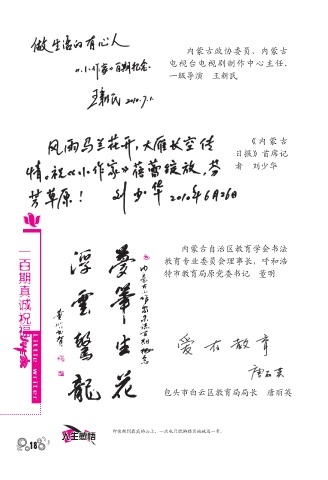 做生活的有心人
《小作家》百期纪念
王新民 2010.7.1.
内蒙古政协委员、内蒙古
电视台电视剧制作中心主任、
一级导演 王新民
风雨马兰花开，大雁长空传
情。祝《小作家》蓓蕾绽放，芬
芳草原！ 刘少华 2010年6月26日
《内蒙古
日报》首席记
者 刘少华
一百期真诚祝福
Little writer
梦笔生花
浮云惊龙
内蒙古自治区教育学会书法
教育专业委员会理事长，呼和浩
特市教育局原党委书记 董明
爱在教育
唐丽英
包头市白云区教育局局长 唐丽英
18
人生感悟